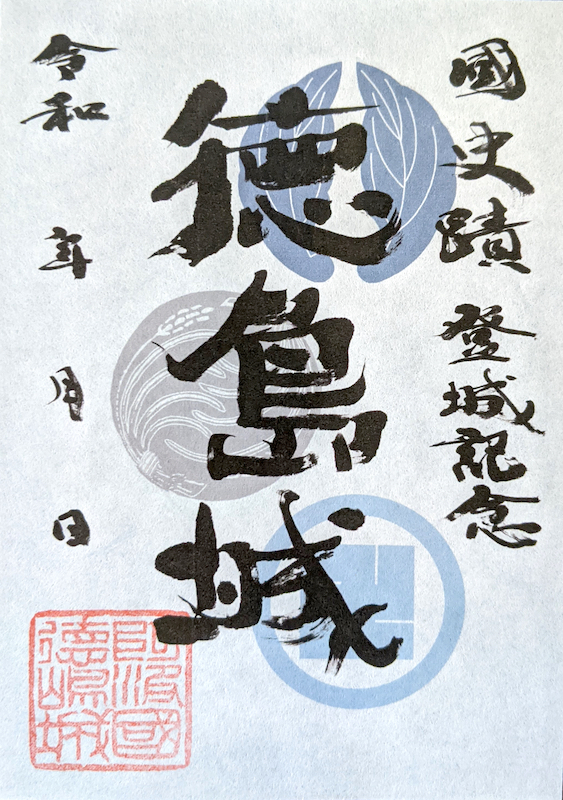 國史蹟 登城記念
徳島城
令和 年 月 日
阿波國
徳嶋城